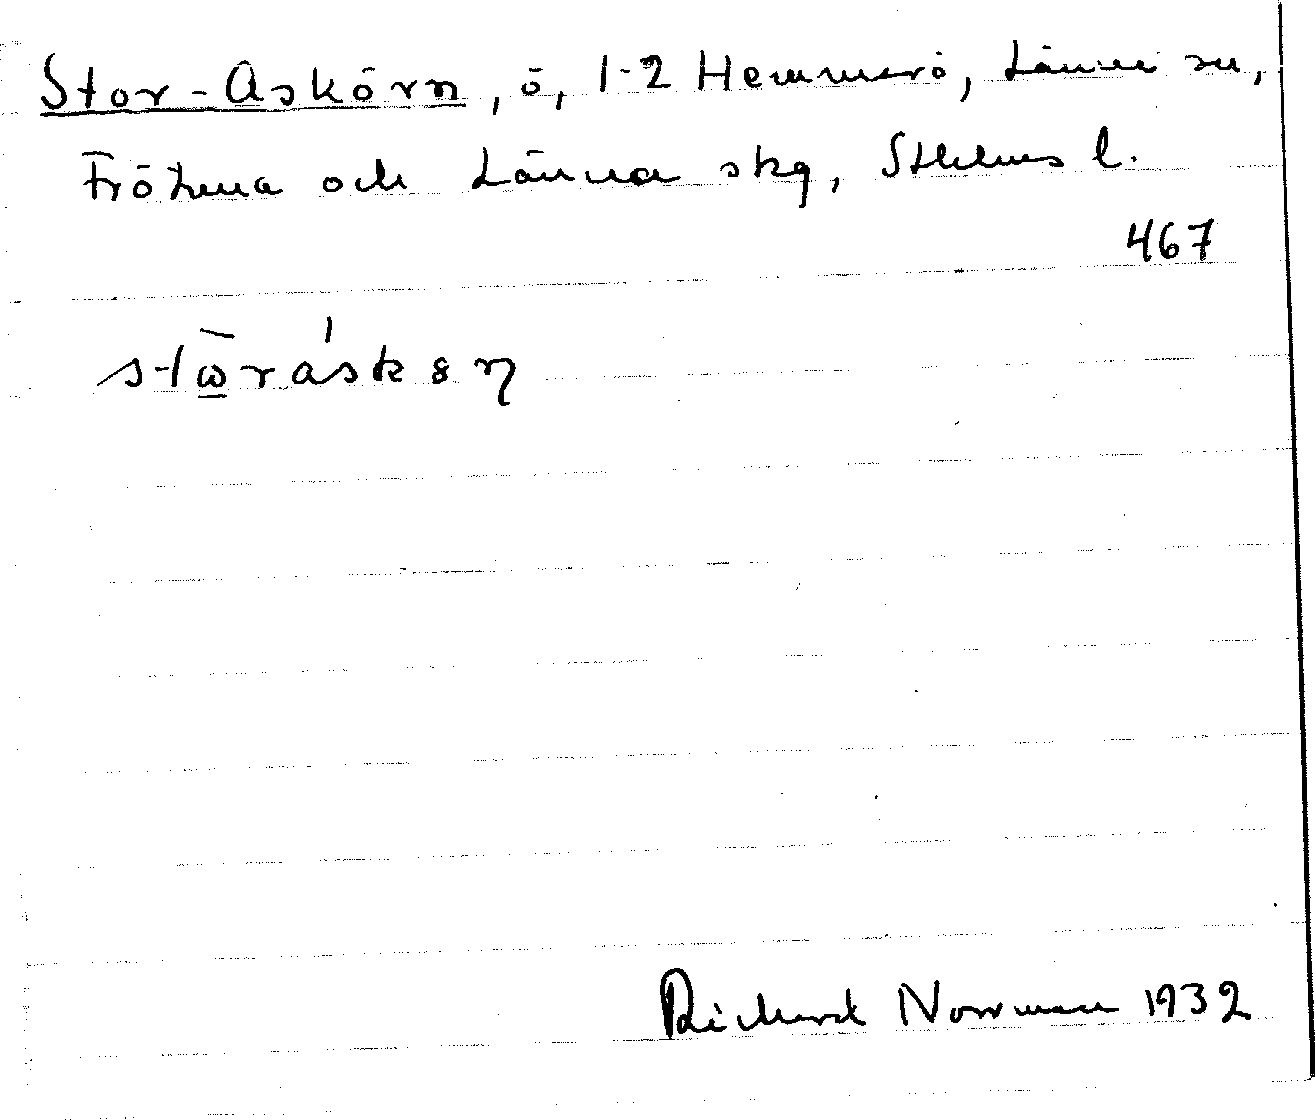 Stor-Askörn, ö, 1-2 Hemmerö, Länna sn,
Frötuna och Länna skg, Sthlms l.
467
stωrásk8η
Richard Norrman 1932